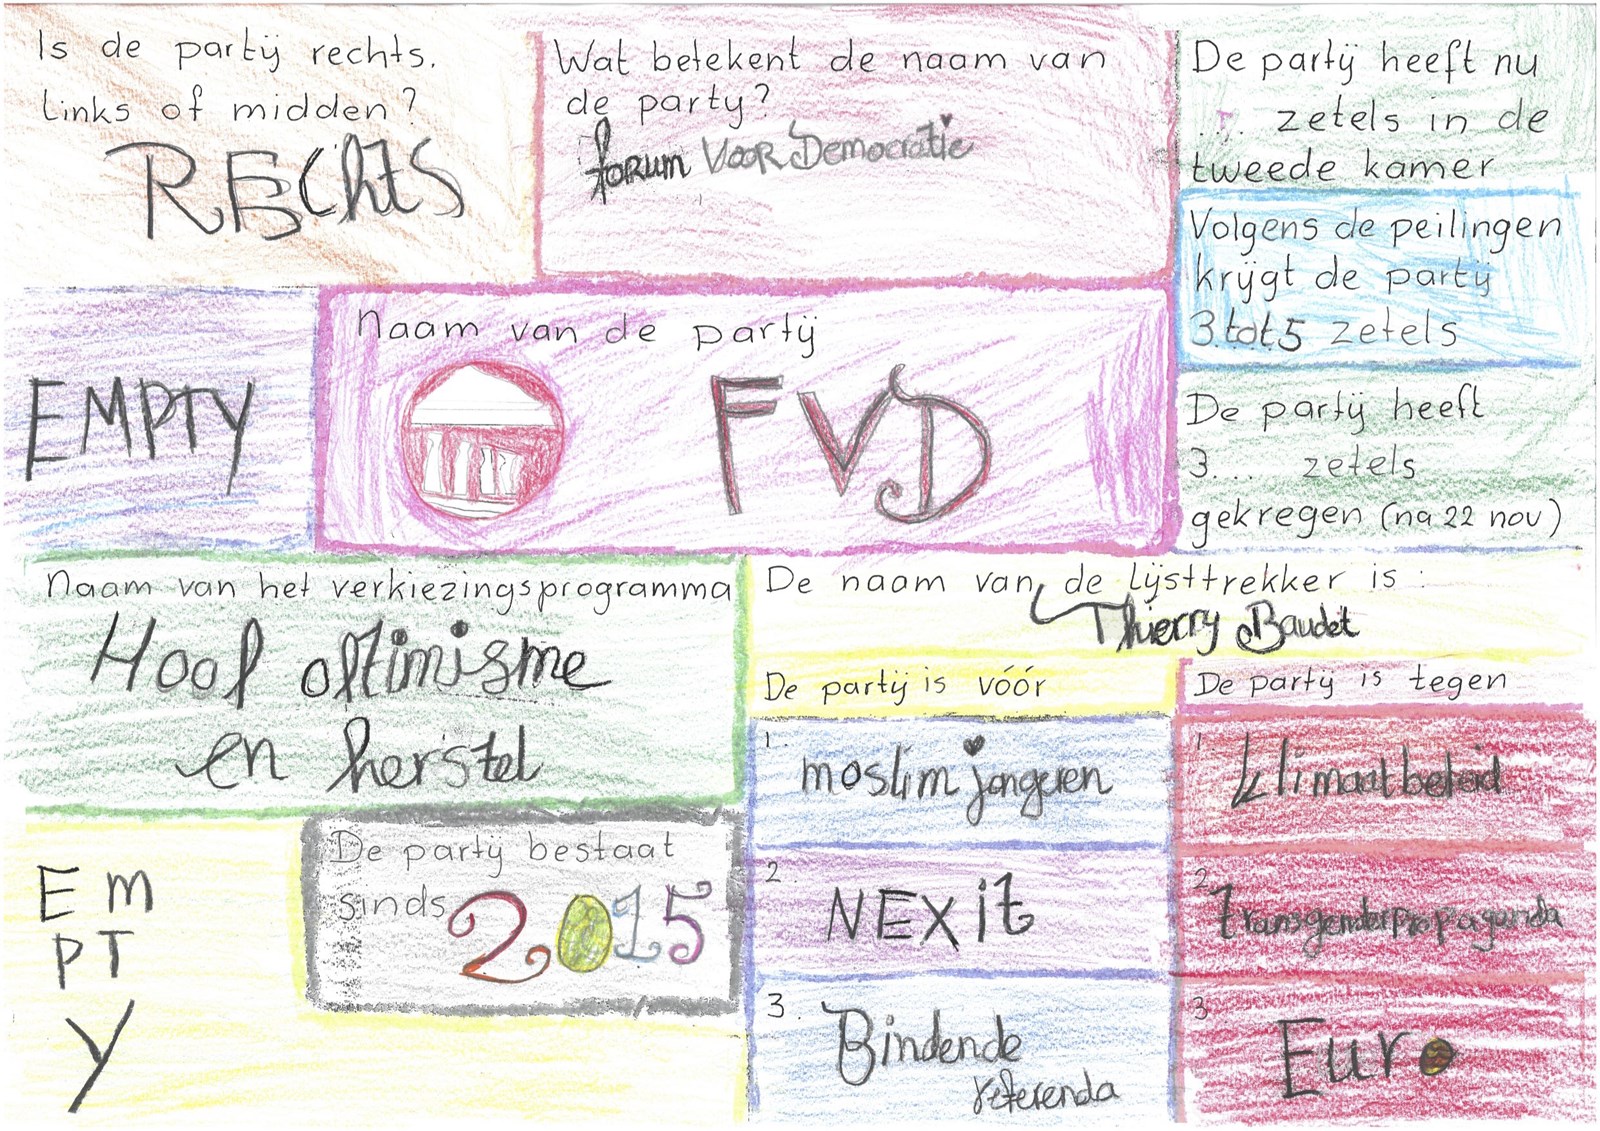 Is de partij rechts.
links of midden?
REchtS
Wat betekent de naam van
de party?
forum VooR Democratie
De partij heeft nu
... zetels in de
tweede kamer
Volgens de peilingen
krijgt de partij
3 tot 5 zetels
De partij heeft
3... zetels
gekregen (na 22 nov)
EMPTY
Naam van de partij
FVD
Naam van het verkiezingsprogramma
Hoop optimisme
en herstel
De naam van de lijsttrekker is :
Thierry Baudet
De partij is vóór
1. moslim jongeren
2 NEXit
3. Bindende
referenda
De partij is tegen
1. klimaatbeleid
2 transgenderpropaganda
3 Euro
EM
PT
Y
De partij bestaat
sinds 2015